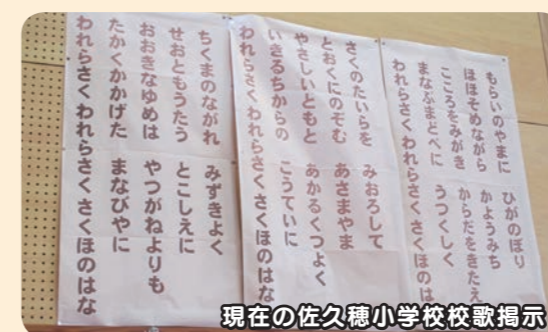 もらいのやまに　ひがのぼり
ほほそめながら　かようみち
こころをみがき　からだをきたえ
まなぶまとべに　うつくしく
われらさく われらさくさくほのはな
さくのたいらを　みおろして
とおくにのぞむ　あさまやま
やさしいともと　あかるくつよく
いきるちからの　こうていに
われらさく われらさくさくほのはな
ちくまのながれ　みずきよく
せおともうたう　とこしえに
おおきなゆめは　やつがねよりも
たかくかかげた　まなびやに
われらさく われらさくさくほのはな
現在の佐久穂小学校校歌掲示